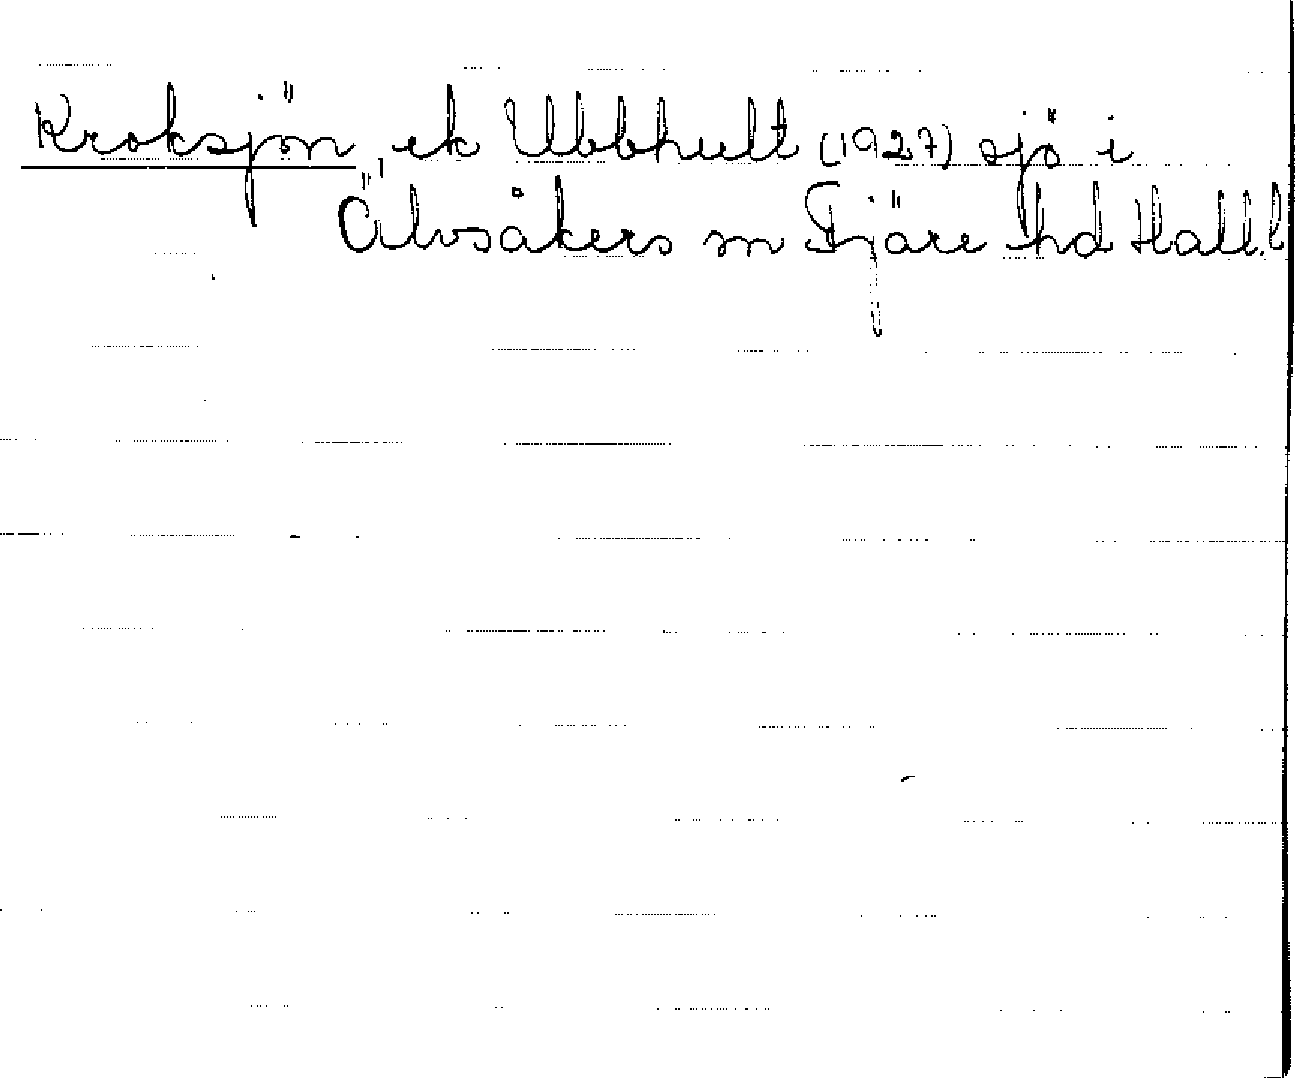 Kroksjön, ek Ubbhult (1927) sjö i
Älvsåkers sn Fjäre hd Hall.l